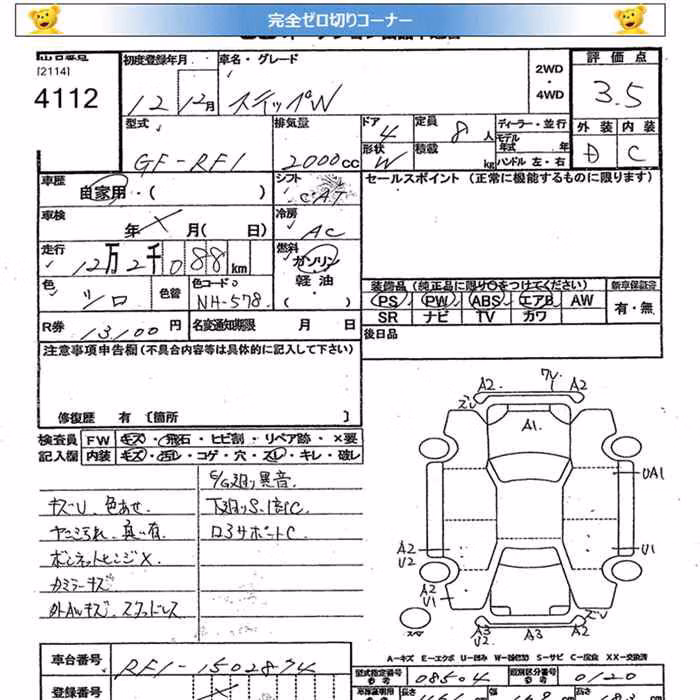 完全ゼロ切りコーナー
[2114]
4112
初度登録年月
12年12月
車名・グレード
ステップW
2WD
・
4WD
評価点
3.5
外装 内装
D C
型式
GF-RF1
排気量
2000cc
ドア
4
形状
W
定員
8人
積載
kg
ディーラー・並行
モデル年式 年
ハンドル 左・右
車歴
自家用・( )
シフト
CAT
セールスポイント (正常に機能するものに限ります)
車検
年 月( 日)
冷房
AC
走行
12万2千088km
燃料
ガソリン
軽油
・( )
色
シロ
色替
色コードNo
NH-578
装備品 (純正品に限り○をつけてください)
PS PW ABS エアB AW
SR ナビ TV カワ
新車保証書
有・無
R券
13100円
名変通知期限 月 日
後日品
注意事項申告欄 (不具合内容等は具体的に記入して下さい)
修復歴 有〔箇所 〕
検査員記入欄
FW キズ・飛石・ヒビ割・リペア跡・×要
内装 キズ・汚レ・コゲ・穴・スレ・キレ・破レ
キズU、色あせ
ヤニ汚れ、臭い有
ボンネットヒンジX
カガミラーキズ
外AWキズ スタッドレス
E/G廻り異音
下廻りS、1部C
ロアサポートC
A2
ワレ
A2
ズレ
A1
UA1
A2
U2
U1
A2
U1
A3
U2
A3
ズレ
スペア
A-キズ E-エクボ U-凹み W-補修跡 S-サビ C-腐食 XX-交換済
車台番号
RF1-1502874
型式指定番号
08504
類別区分番号
0120
登録番号